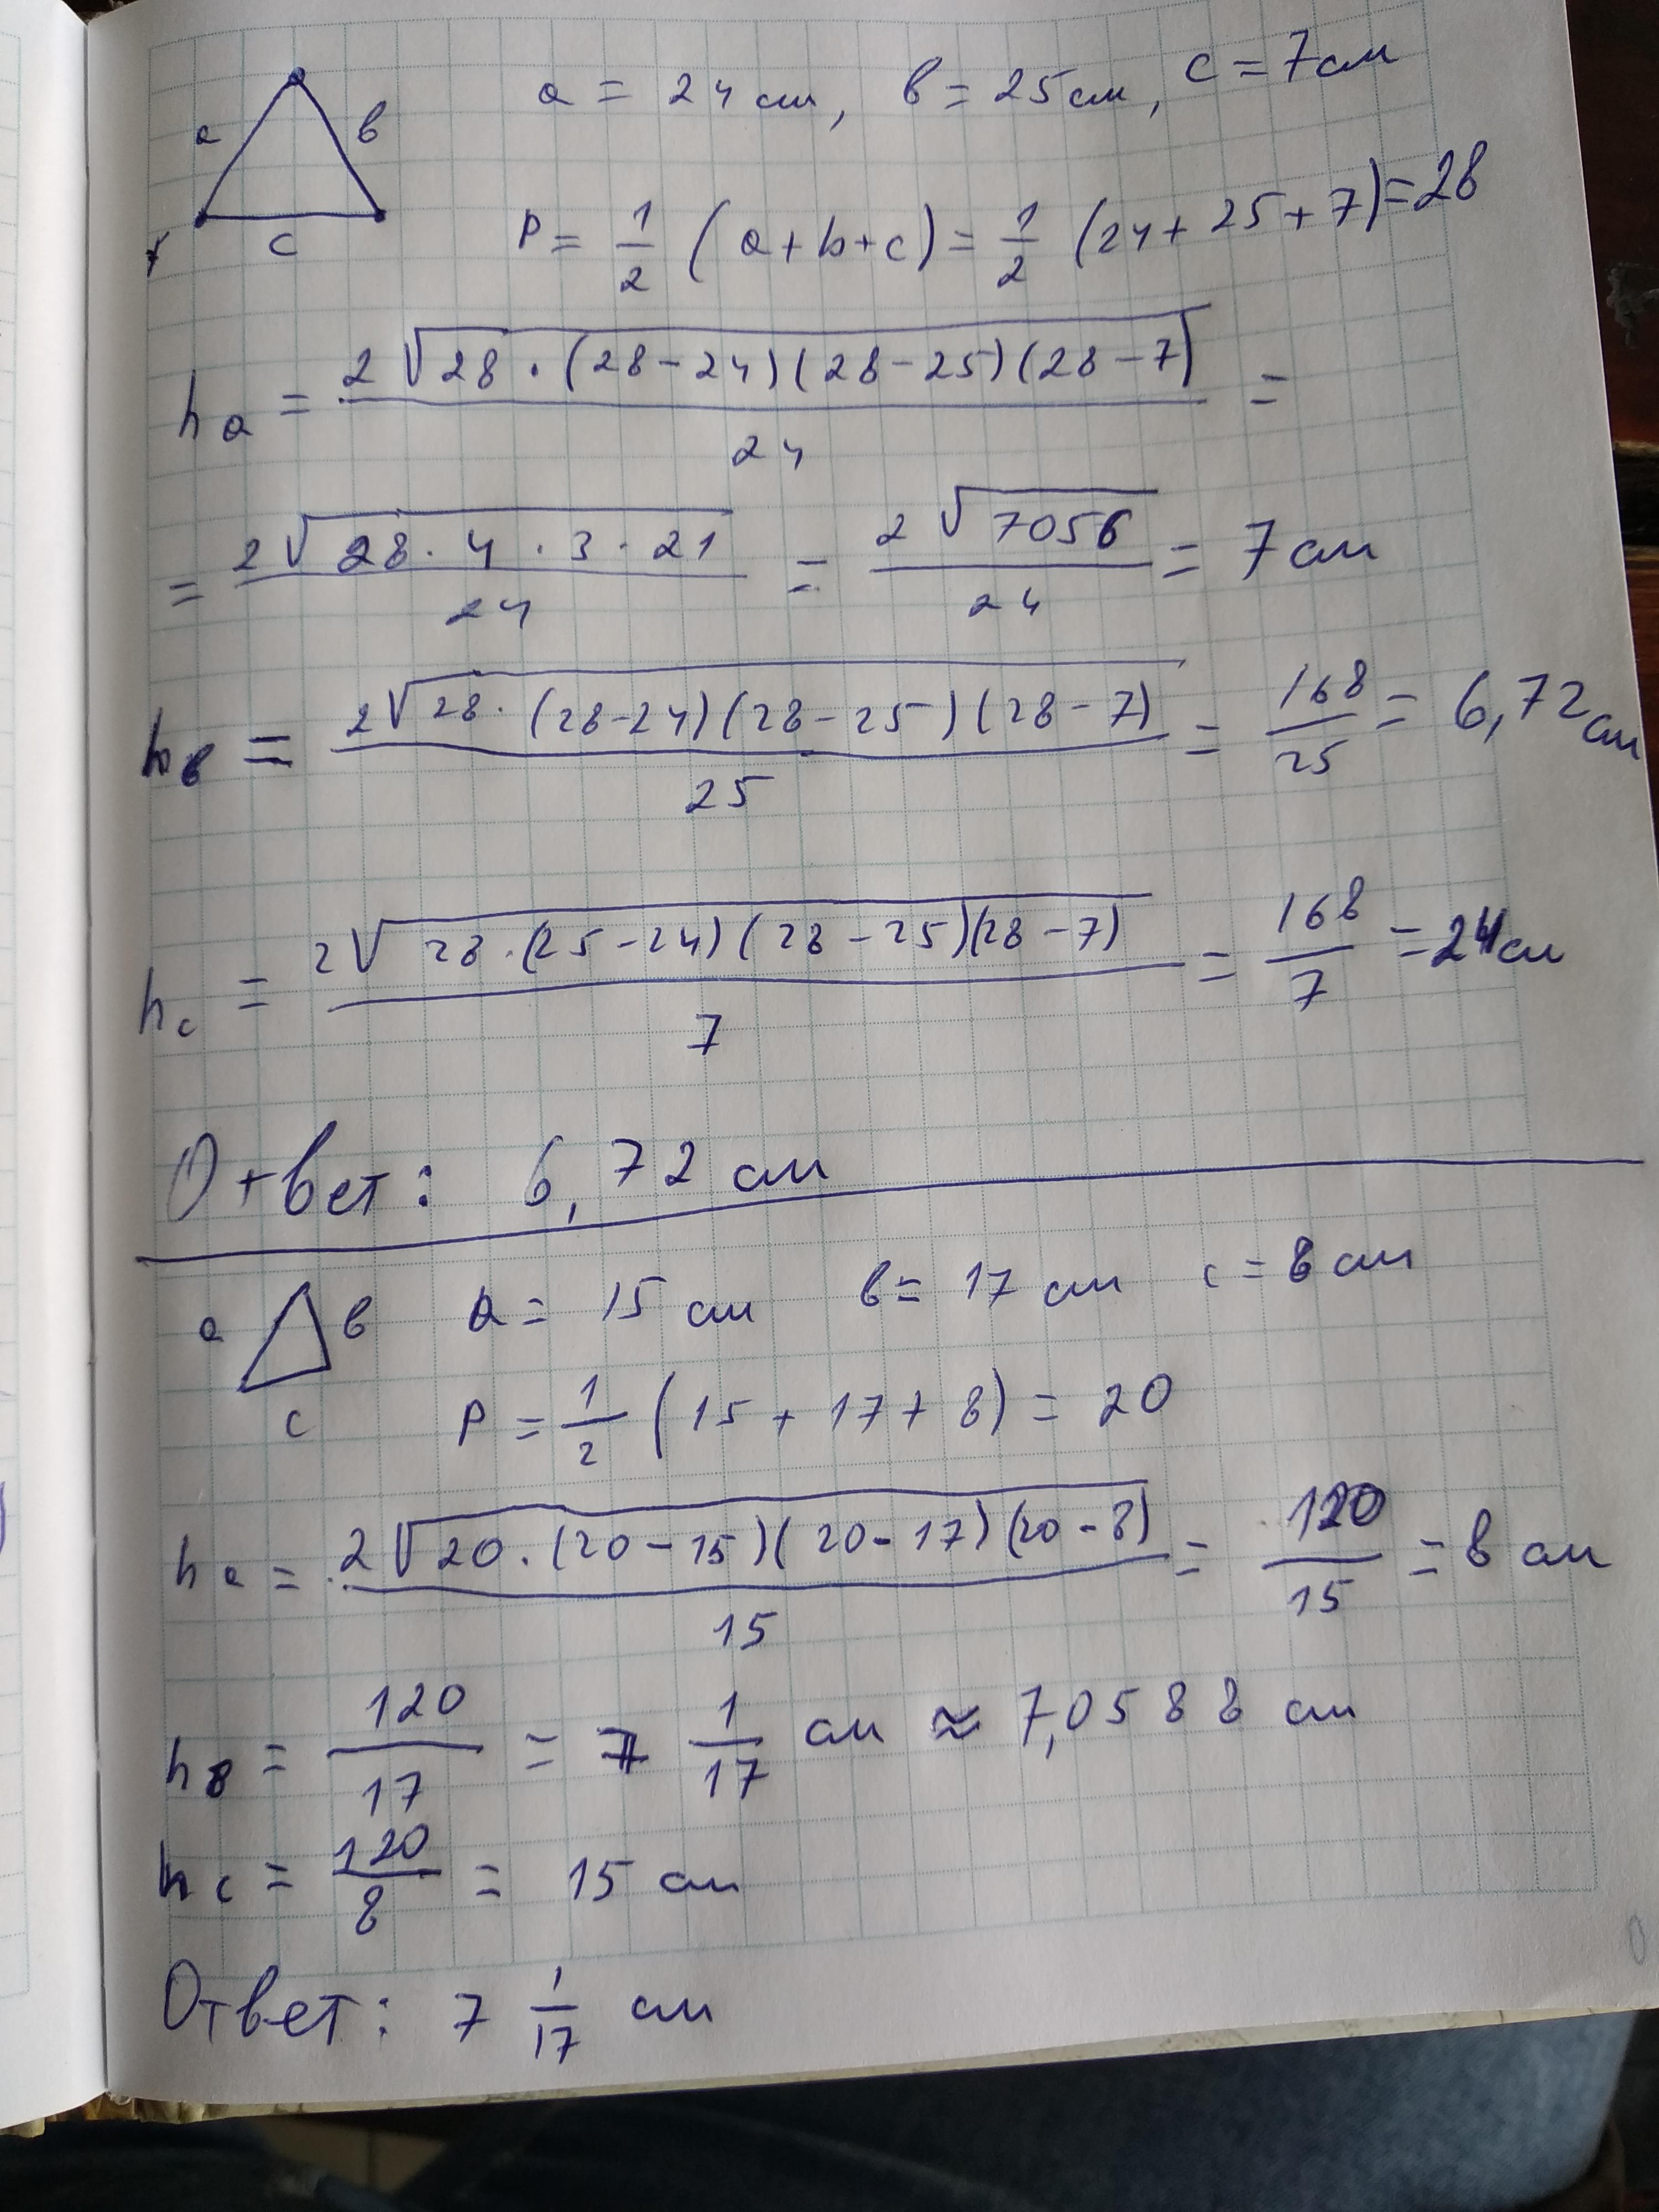 a b c
a = 24 см, в = 25 см, c = 7 см
P = 1/2 (a+b+c) = 1/2 (24+25+7) = 28
h a = 2√28·(28-24)(28-25)(28-7) / 24 =
= 2√28·4·3·21 / 24 = 2√7056 / 24 = 7 см
h в = 2√28·(28-24)(28-25)(28-7) / 25 = 168/25 = 6,72 см
h c = 2√28·(25-24)(28-25)(28-7) / 7 = 168/7 = 24 см
Ответ: 6,72 см
a в c
a = 15 см в = 17 см c = 8 см
P = 1/2 (15+17+8) = 20
h a = 2√20·(20-15)(20-17)(20-8) / 15 = 120/15 = 8 см
h в = 120/17 = 7 1/17 см ≈ 7,0588 см
h c = 120/8 = 15 см
Ответ: 7 1/17 см